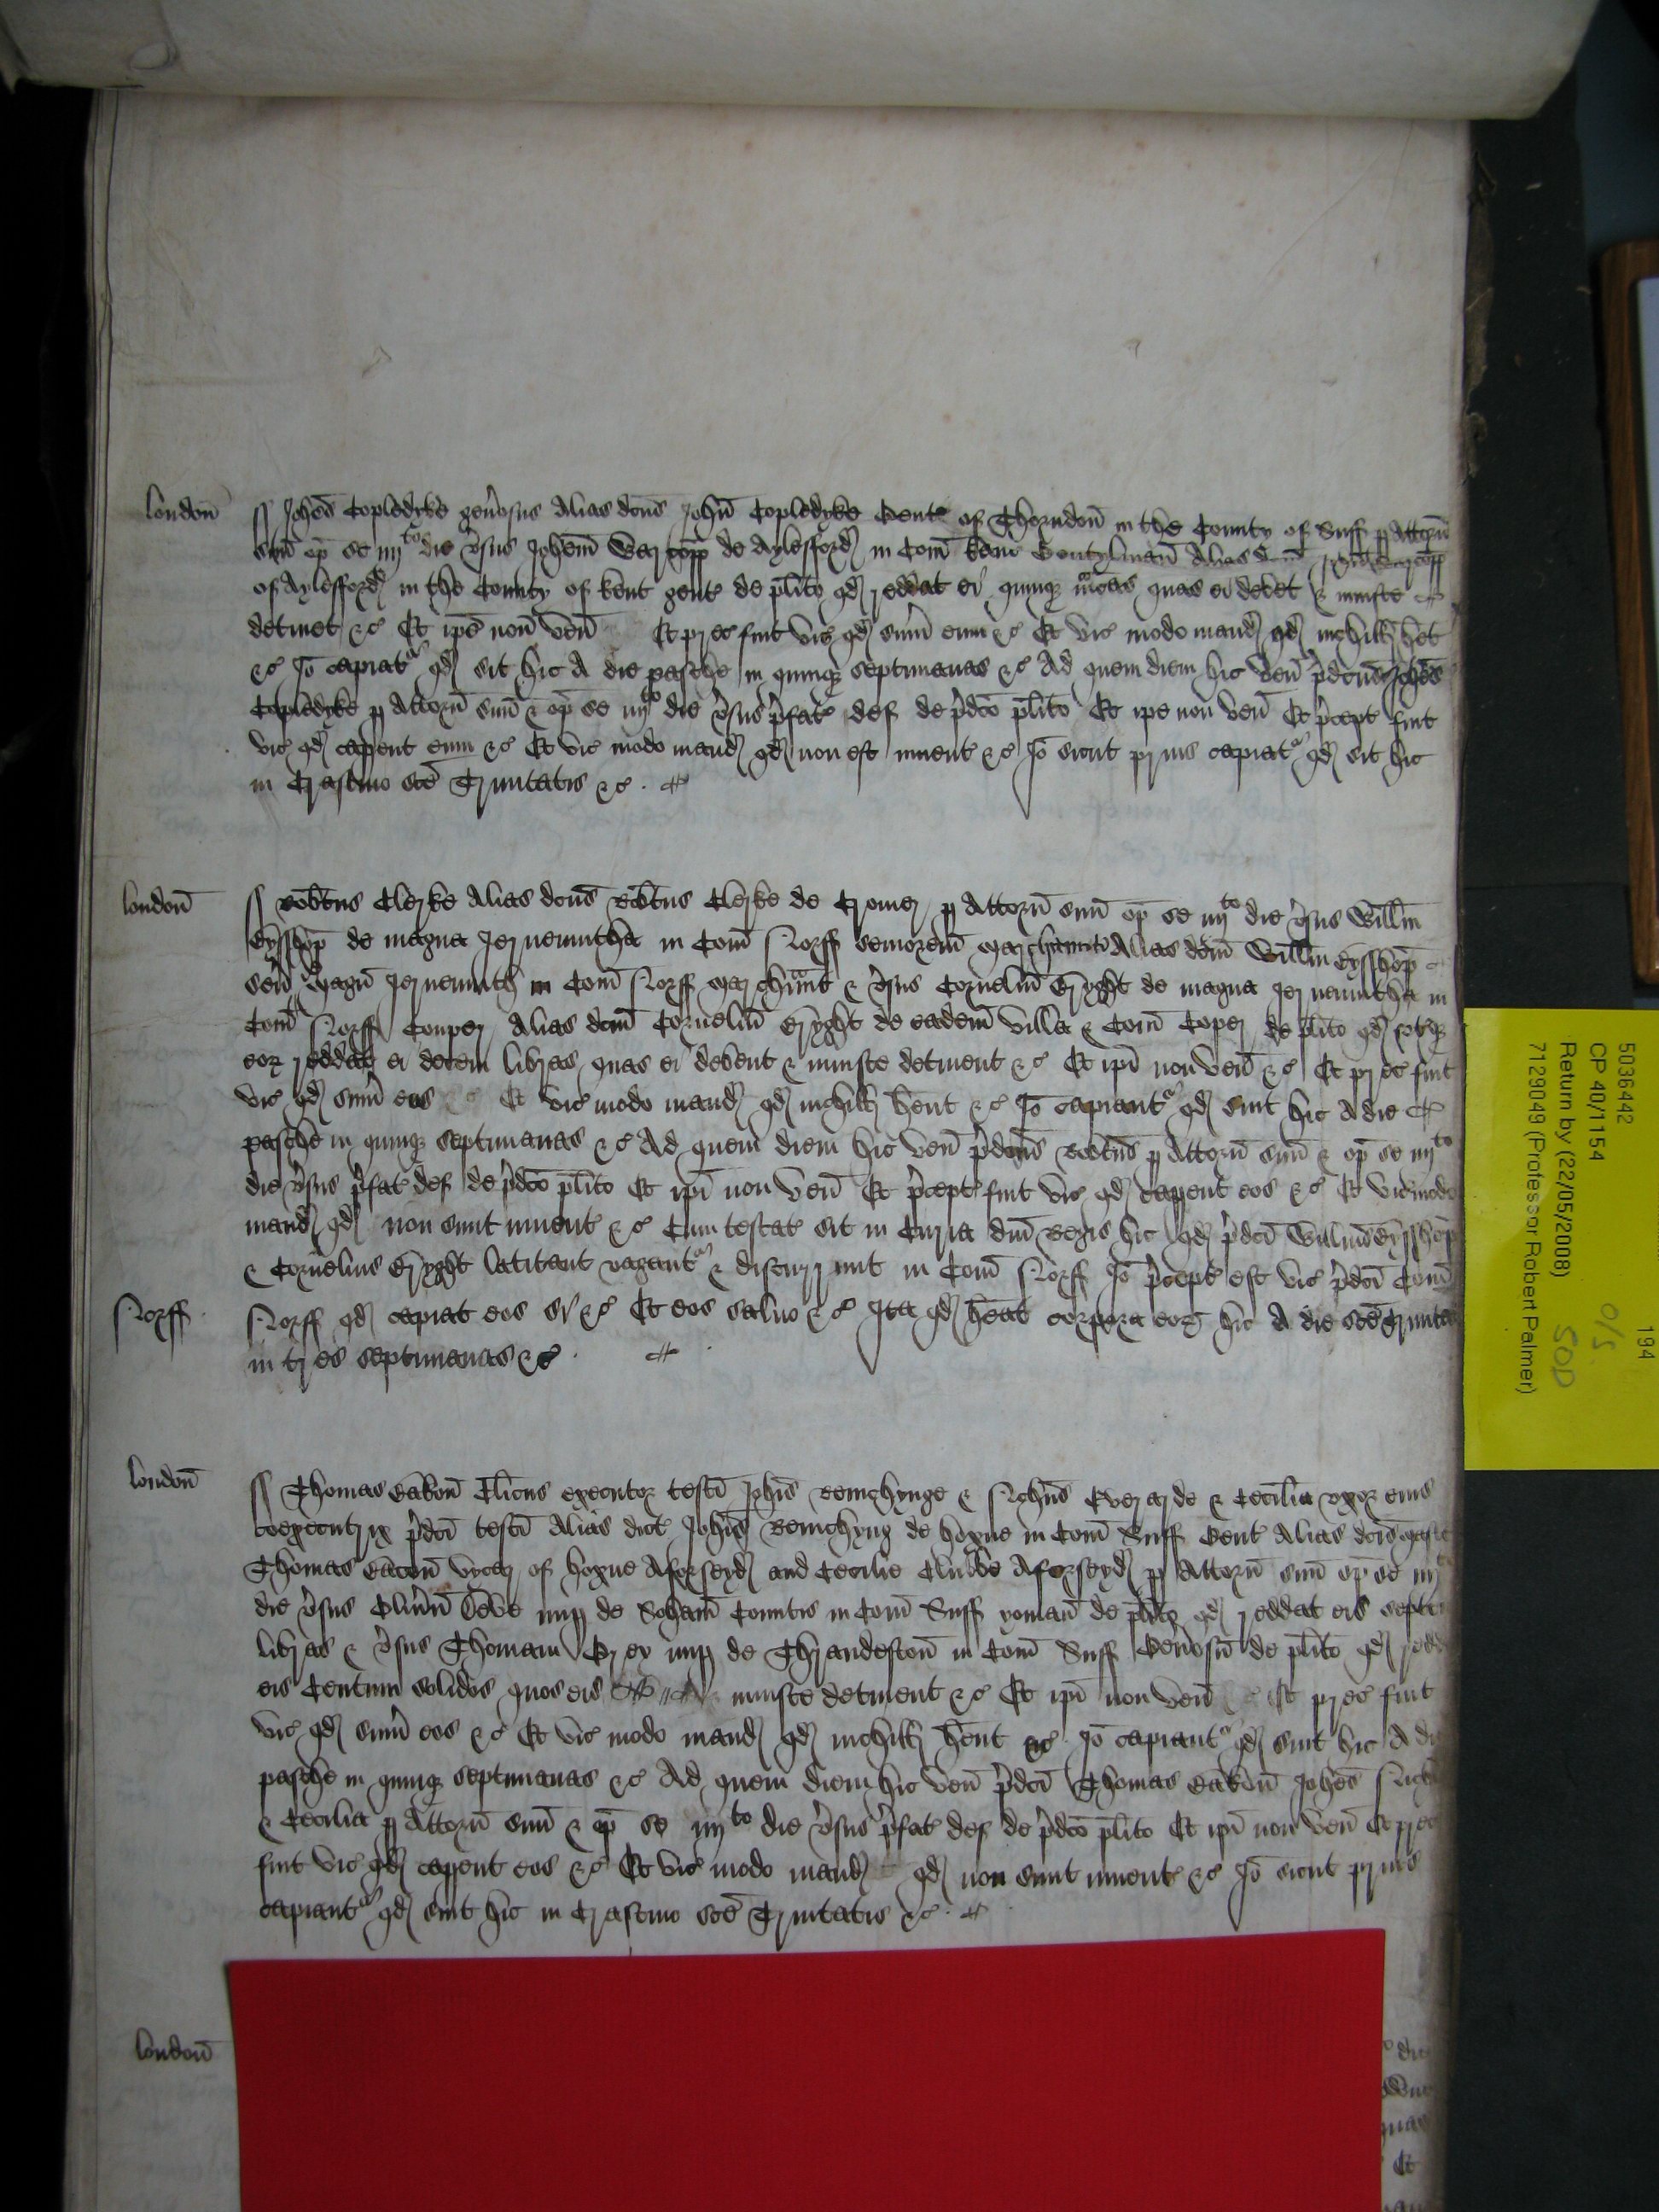 london̄ Joħes Copledyke gen̾osus Alias dc̄us Joħn Copledyke Gent of Thorndon̄ in the County of Suff p Attorn̄
suū op̄ se iiijto die v̾sus Joħem de Aylesford in Com̄ Kanc Gentylman̄ Alias dc̄m
of Aylesfford in the County of Kent gent de pl̄ito qd reddat ei quinqz m̾cas quas ei debet & iniuste
detinet &c Et ip̄e non ven̄ Et prec fuit vic qd sum̄ eum &c Et vic modo mand qd nichil h̄et
&c Jo capiatr qd sit hic A die pasche in quinqz septimanas &c Ad quem diem hic ven̄ p̾dcūs Joħes
Copledyke p Attorn̄ suū & op̄ se iiijto die v̾sus p̾fat def de p̾dc̄o pl̄ito Et ip̄e non ven̄ Et p̾cept fuit
vic qd capent eum &c Et vic modo mand qd non est inuent &c Jo sicut prius capiatr qd sit hic
in Crastino sc̄e Trinitatis &c
london̄ Rob̄tus Clerke Alias dc̄us Rob̄tus Clerke de Cromer p Attorn̄ suū op̄ se iiijto die v̾sus Will̄m
Bysshop̄ de magna Jernemutha in Com̄ Norff seniorem marchaunt Alias dc̄m Will̄m Bysshop̄
sen̄ magn̄ Jernemuth in Com̄ Norff marchaunt & v̾sus Corneliū Bryght de magna Jernemutha in
Com̄ Norff Couper Alias dc̄m Corneliū Bryght de eadem villa & Com̄ Coper de pl̄ito qd vterqz
eor reddat ei decem libras quas ei debent & iniuste detinent &c Et ip̄i non ven̄ &c Et prec fuit
vic qd sum̄ eos &c Et vic modo mand qd nichil h̄ent &c Jo capiantr qd sint hic A die
pasche in quinqz septimanas &c Ad quem diem hic ven̄ p̾dcūs Rob̄tus p Attorn̄ suū & op̄ se iiijto
die v̾sus p̾fat def de p̾dc̄o pl̄ito Et ip̄i non ven̄ Et p̾cept fuit vic qd capent eos &c Et vic modo
mand qd non sunt inuent &c Cum testat sit in Curia dn̄i Regis hic qd p̾dc̄i Will̄mus Bysshop
& Cornelius Bryght latitant vagantr & discurrunt in Com̄ Norff Jo p̾cept est vic p̾dc̄i Com̄
Norff Norff qd capiat eos si &c Et eos saluo &c Jta qd h̄eat corpora eor hic A die sc̄e Trinita
in tres septimanas &c
london̄ Thomas Bakon̄ Cl̄icus executor testi Joħis Remchynge & Joħnes Everarde & Cecilia vxor eius
coexecutrix p̾dc̄i testi Alias dict Joħis Remchyng de hoxne in Com̄ Suff Gent Alias dc̄us
Thomas Bacon̄ vycar of hoxne Aforseyd and Cecilie Clubbe Aforseyd p Attorn̄ suū op̄ se iiij
die v̾sus Oliu̾m de Soham Comitis in Com̄ Suff yoman̄ de pl̄ito qd reddat eis septem
libras & v̾sus Thomam Grey nup de Thrandeston̄ in Com̄ Suff Gen̾osū de pl̄ito qd redd
eis Centum solidos quos eis iniuste detinent &c Et ip̄i non ven̄ Et prec fuit
vic qd sum̄ eos &c Et vic modo mand qd nichil h̄ent &c Jo capiantr qd sint hic A di
pasche in quinqz septimanas &c Ad quem diem hic ven̄ p̾dc̄i Thomas Bakon̄ Joħes
& Cecilia p Attorn̄ suū & op̄ se iiijto die v̾sus p̾fat def de p̾dc̄o pl̄ito Et ip̄i non ven̄ Et prec
fuit vic qd capent eos &c Et vic modo mand qd non sunt inuent &c Jo sicut prius
capiantr qd sint hic in Crastino sc̄e Trinitatis &c
london̄
5036442
CP 40/1154
Return by (22/05/2008)
7129049 (Professor Robert Palmer)
194
O/S
SOD